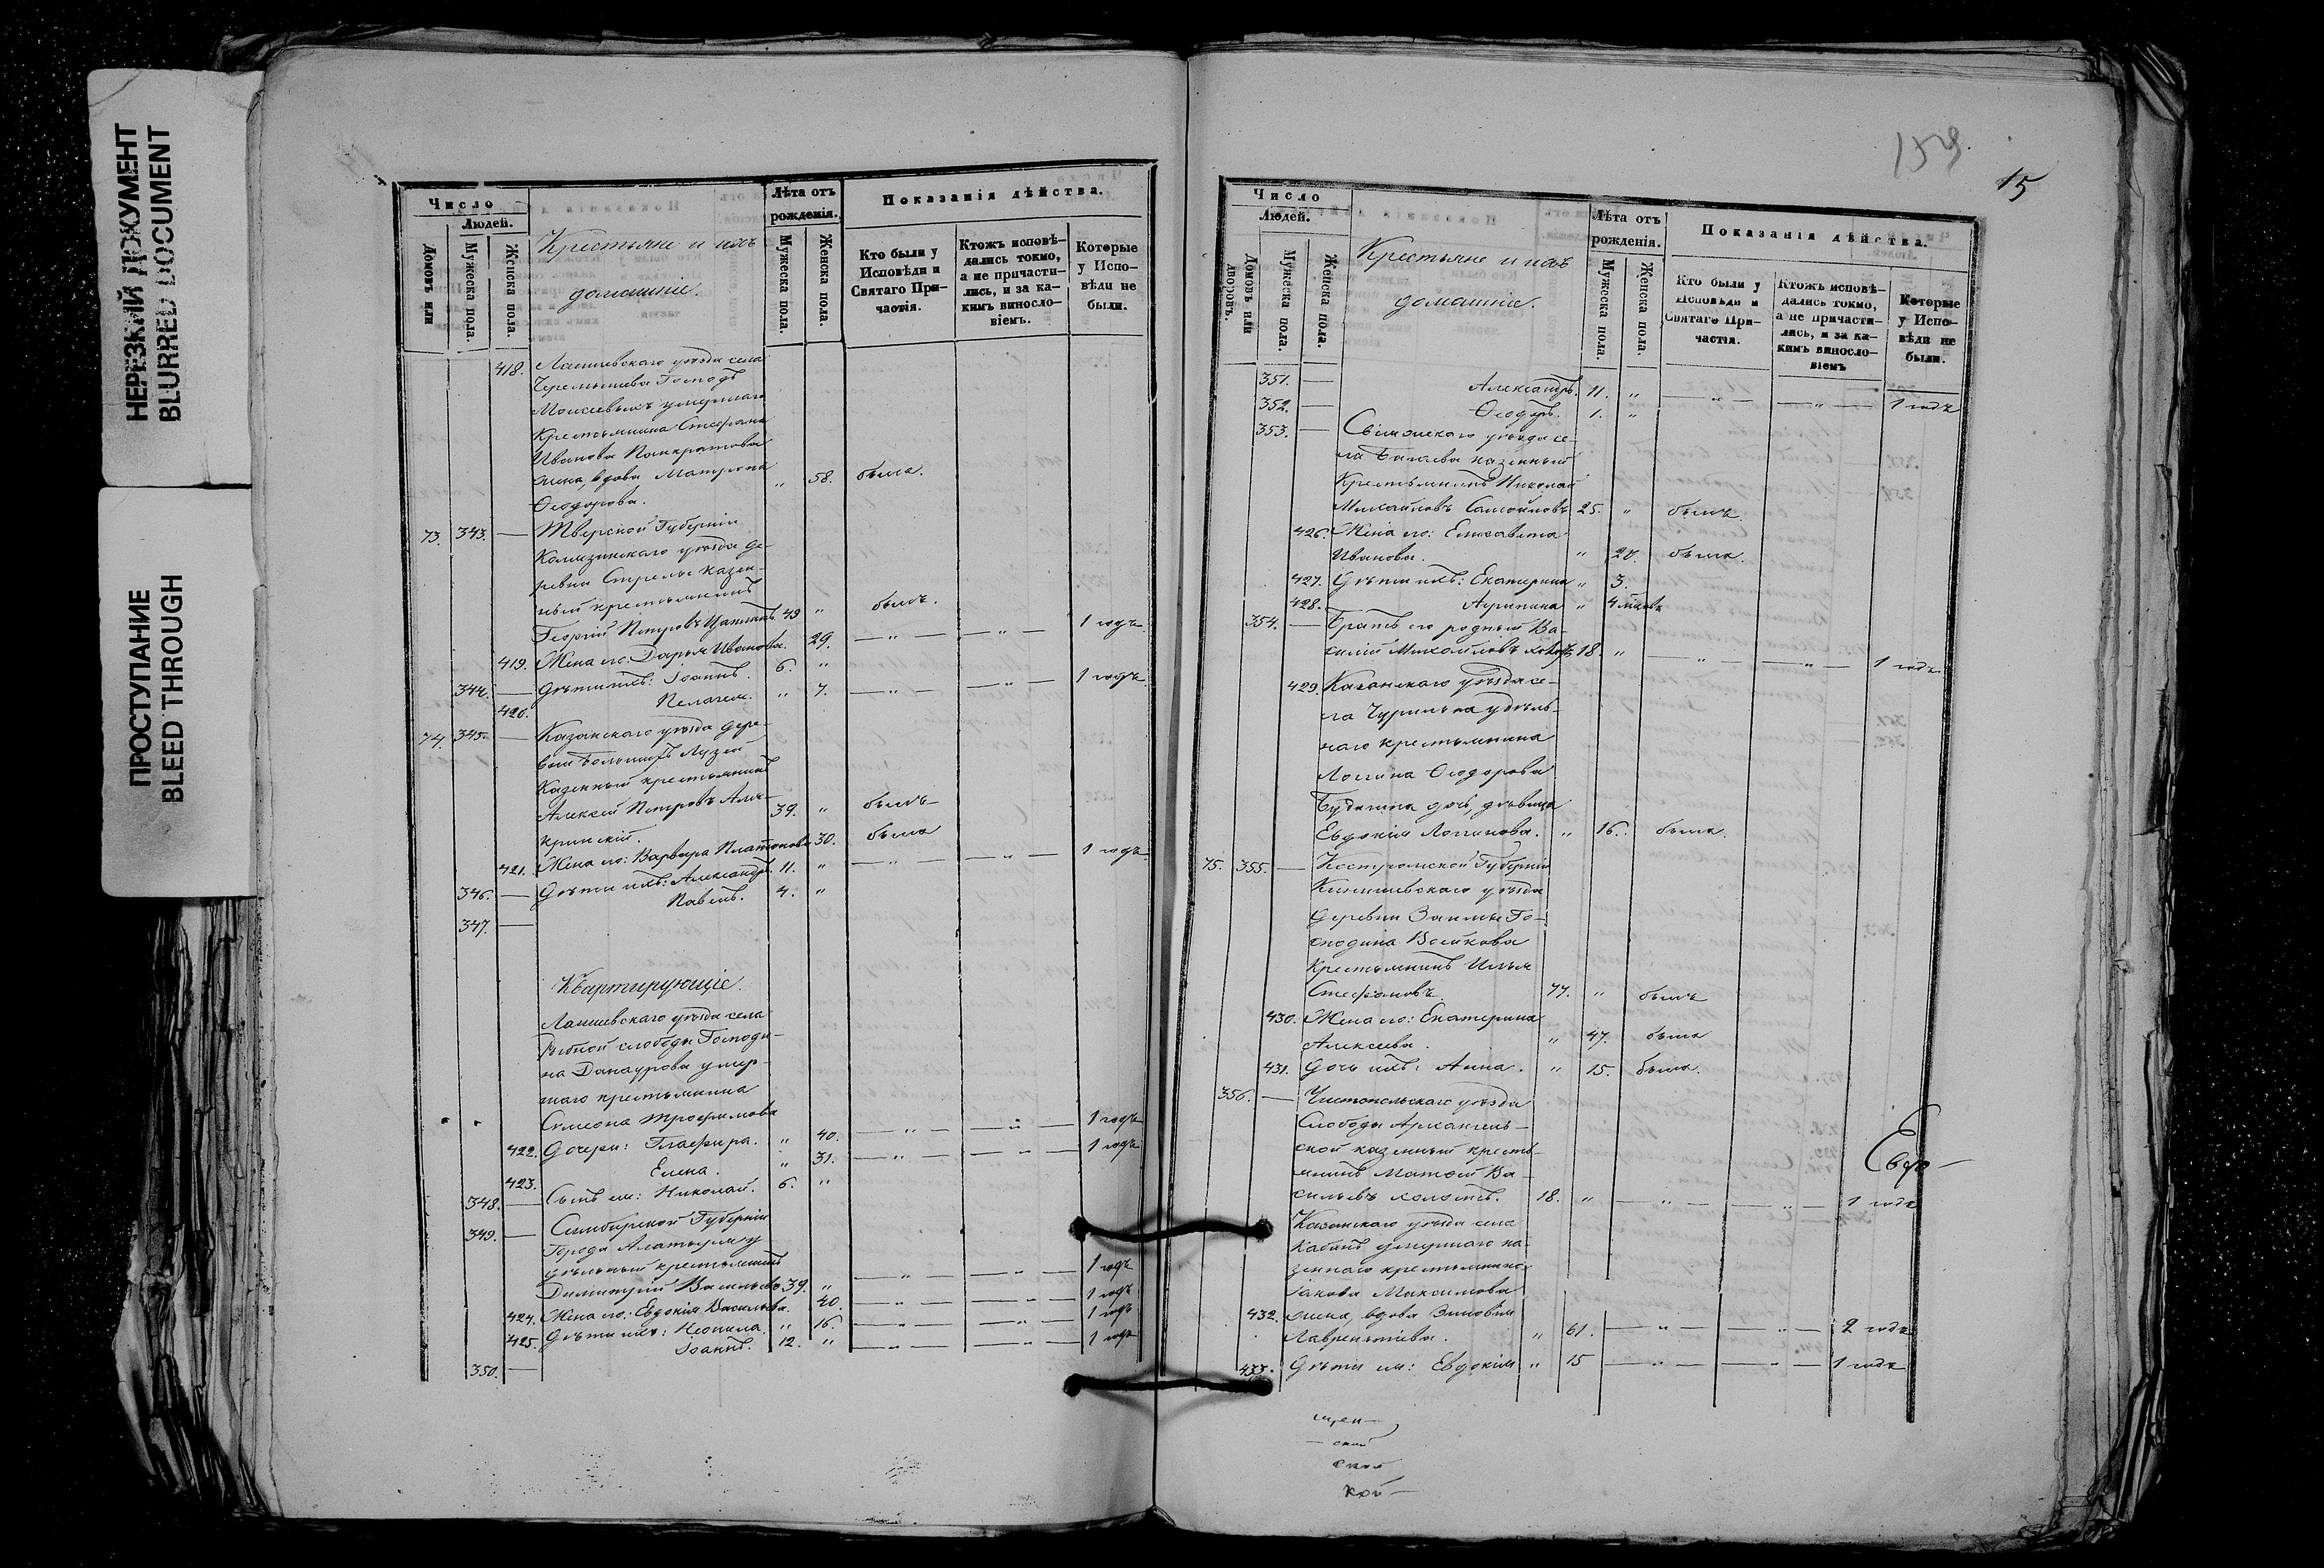 НЕРЕЗКИЙ ДОКУМЕНТ
BLURRED DOCUMENT
ПРОСТУПАНИЕ
BLEED THROUGH
Число
Людей.
Домовъ или
Мужеска пола.
Женска пола.
Крестьяне и ихъ
домашніе.
Лѣта отъ
рожденія.
Мужеска пола.
Женска пола.
Показанія дѣйства.
Кто были у
Исповѣди и
Святаго При-
частія.
Ктожъ исповѣ-
дались токмо,
а не причасти-
лись, и за ка-
кимъ винсло-
віемъ.
Которые
у Испо-
вѣди не
были.
418. Лаишевскаго уѣзда села
Черемышева Господъ
Моисеевыхъ умершаго
Крестьянина Стефана
Иванова Панкратова
жена, вдова Матрона
Ѳеодорова. " 58. была.
73. 343. — Тверской Губерніи
Калязинскаго уѣзда де-
ревни Стрелье казен-
ный крестьянинъ
Георгій Петровъ 49 " былъ.
419. Жена его: Дарья Иванова. 29. — " — — " — 1 годъ.
344. — Дѣти ихъ: Іоаннъ. 6. "
420. Пелагея. " 7. — " — — " — 1 годъ.
74. 345. — Казанскаго уѣзда дере-
вни Большихъ
Казенный крестьянинъ
Алексей Петровъ
39. " былъ
421. Жена его: Варвара Платонова 30. была
346. — Дѣти ихъ: Александръ. 11. " — " — — " — 1 годъ.
347. — Павелъ. 4. "
Квартирующіе.
Лаишевскаго уѣзда села
Рыбной слободы Господи-
на Данаурова умер-
шаго крестьянина
Симеона Трофимова
422. Дочери: Глафира. " 40. — " — — " — 1 годъ
423. Елена. " 31. — " — — " — 1 годъ
348. — Сынъ ея: Николай. 6. "
349. — Симбирской Губерніи
Города Алатыря
удѣльный крестьянинъ
Димитрій Васильевъ 39. " — " — — " — 1 годъ
424. Жена его: Евдокія Васильева. 40. — " — — " — 1 годъ
425. Дѣти ихъ: Неонила. " 16. — " — — " — 1 годъ
350. — Іоаннъ. 12. " — " — — " — 1 годъ
159
15
Число
Людей.
Домовъ или
дворовъ.
Мужеска пола.
Женска пола.
Крестьяне и ихъ
домашніе.
Лѣта отъ
рожденія.
Мужеска пола.
Женска пола.
Показанія дѣйства.
Кто были у
Исповѣди и
Святаго При-
частія.
Ктожъ исповѣ-
дались токмо,
а не причасти-
лись, и за ка-
кимъ винсло-
віемъ
Которые
у Испо-
вѣди не
были.
351. — Александръ. 11. " — " — — " — 1 годъ
352. — Ѳеодоръ. 1. "
353. — Свіяжскаго уѣзда се-
ла казенный
Крестьянинъ Николай
Михайловъ Самойловъ 25. " былъ.
426. Жена его: Елисавета
Иванова. " 20. была.
427. Дѣти ихъ: Екатерина " 3.
428. Агрипина " 4
354. — Братъ его родный Ва-
силій Михайловъ холостъ 18. " — " — — " — 1 годъ.
429. Казанскаго уѣзда се-
ла Чурилина удѣль-
наго крестьянина
Логгина Ѳеодорова
дочь, дѣвица
Евдокія Логгинова. " 16. была.
75. 355. — Костромской Губерніи
Кинешевскаго уѣзда
Деревни Го-
сподина Воейкова
Крестьянинъ Илья
Стефановъ 77. " былъ
430. Жена его: Екатерина
Алексеева. " 47. была
431. Дочь ихъ: Анна. " 15. была.
356. — Чистопольскаго уѣзда
Слободы Архангель-
ской казенный кресть-
янинъ Матѳей Ва-
сильевъ холостъ. 18. " — " — — " — 1 годъ
Казанскаго уѣзда села
Кабанъ умершаго ка-
зеннаго крестьянина
Іакова Максимова
432. жена, вдова Зиновія
Лаврентіева. " 61. — " — — " — 2 года
433. Дѣти ея: Евдокія " 15 — " — — " — 1 годъ
ской
ской
кой